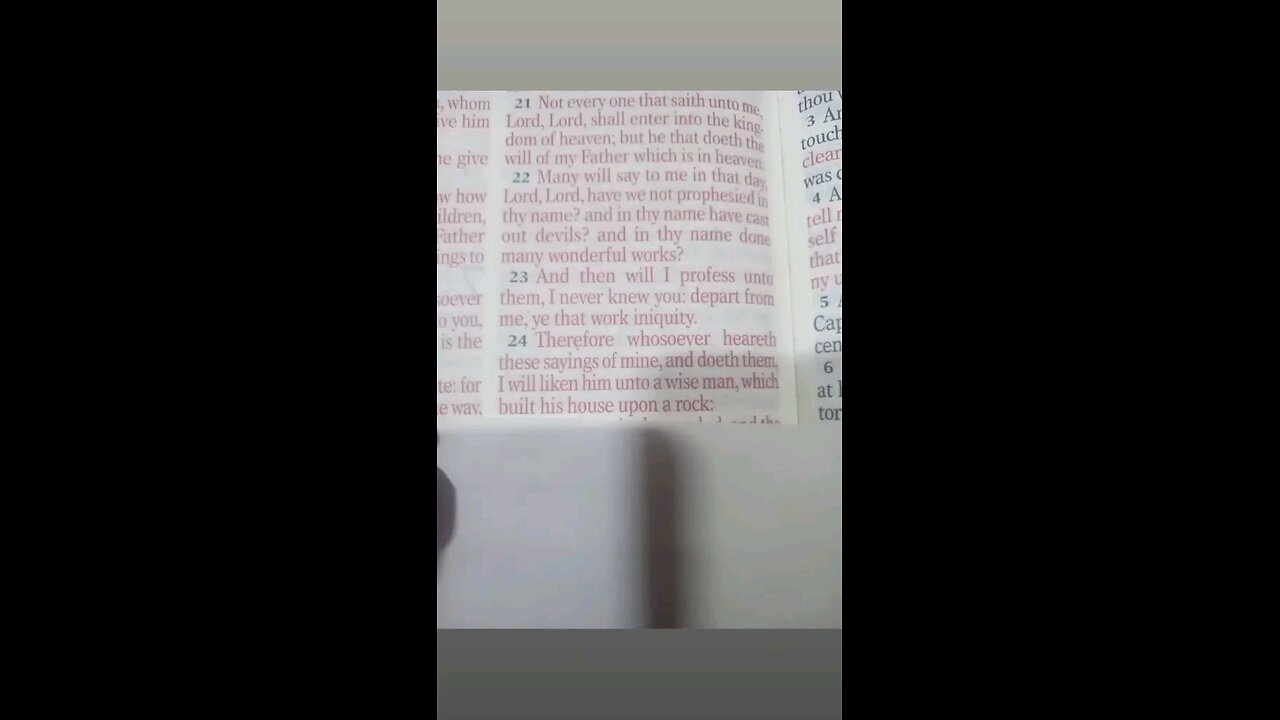 , whom
ive him
he give
w how
ildren,
Father
ings to
soever
o you,
is the
te: for
e way,
21 Not every one that saith unto me,
Lord, Lord, shall enter into the king-
dom of heaven; but he that doeth the
will of my Father which is in heaven.
22 Many will say to me in that day,
Lord, Lord, have we not prophesied in
thy name? and in thy name have cast
out devils? and in thy name done
many wonderful works?
23 And then will I profess unto
them, I never knew you: depart from
me, ye that work iniquity.
24 Therefore whosoever heareth
these sayings of mine, and doeth them,
I will liken him unto a wise man, which
built his house upon a rock:
thou
3 An
touch
clean
was c
4 A
tell
self
that
ny
5
Cap
cen
6
at
tor